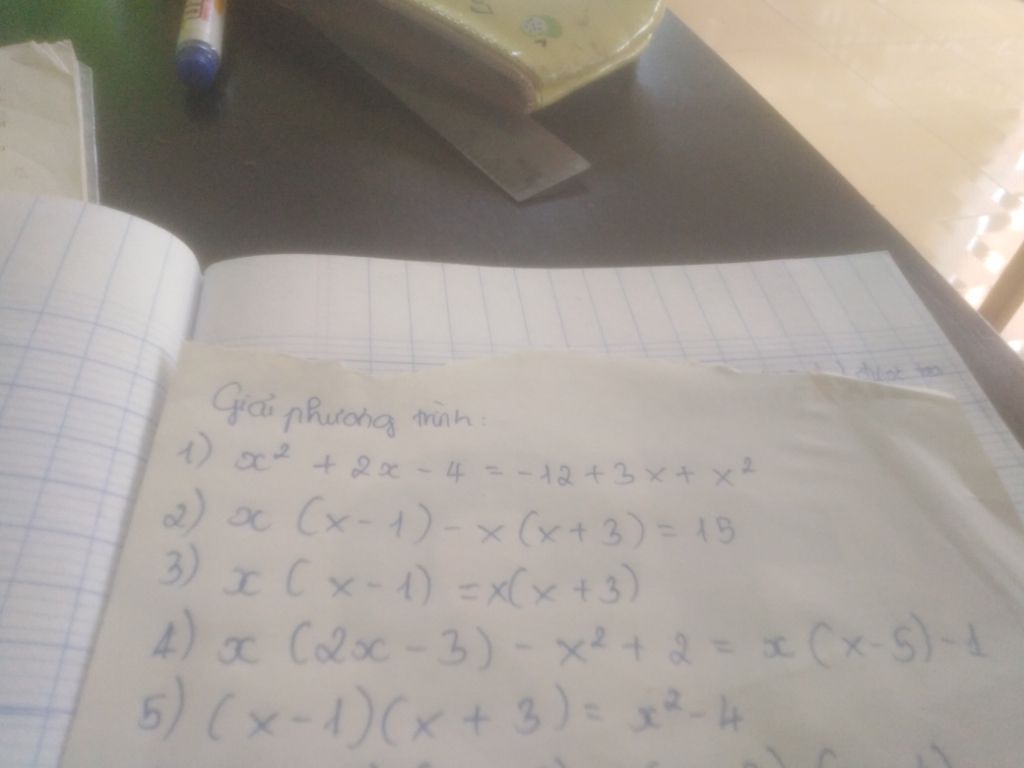 Giải phương trình:
1) x² + 2x - 4 = -12 + 3x + x²
2) x (x - 1) - x (x + 3) = 15
3) x (x - 1) = x(x + 3)
4) x (2x - 3) - x² + 2 = x(x - 5) - 1
5) (x - 1)(x + 3) = x² - 4